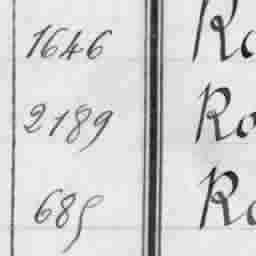 1646 Ro
2189 Ro
685 Ro